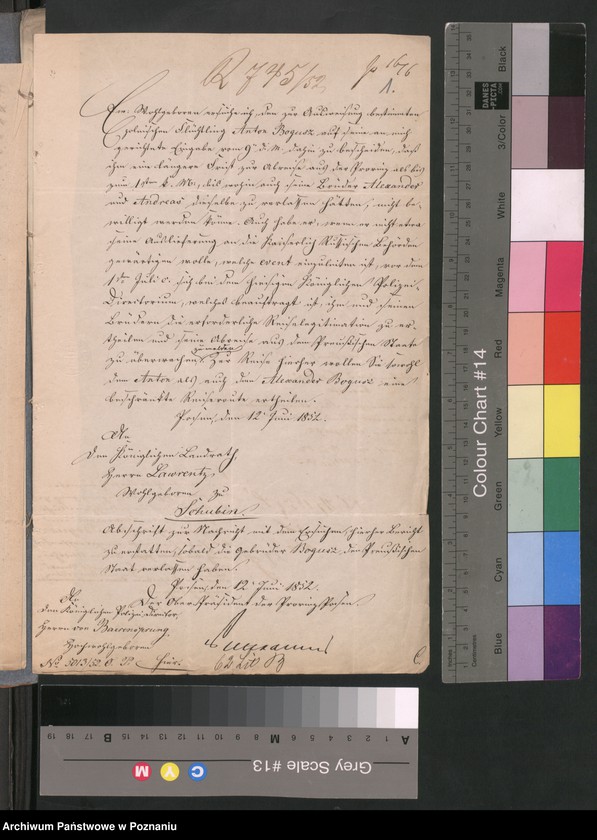 R 745/52
pr 16/6
1.
Ew. Wohlgeboren ersuche ich, den zur Ausweisung bestimmten
Polnischen Flüchtling Anton Bogusz auf seine an mich
gerichtete Eingabe vom 9ten d. M. dahin zu bescheiden, daß
ihm eine längere Frist zur Abreise aus der Provinz als bis
zum 1sten k. M., bis wohin auch seine Brüder Alexander
und Andreas dieselbe zu verlassen hätten, nicht be-
willigt werden könne. Auch habe er, wenn er nicht etwa
seine Auslieferung an die Kaiserlich Russischen Behörden
gewärtigen wolle, welche event einzuleiten ist, vor dem
1sten Juli c. sich bei dem hiesigen Königlichen Polizei-
Directorium, welches beauftragt ist, ihm und seinen
Brüdern die erforderliche Reiselegitimation zu er-
theilen und seine Abreise aus dem Preußischen Staate
zu überwachen, zu melden. Zur Reise hierher wollen Sie sowohl
dem Anton als auch dem Alexander Bogusz eine
beschränkte Reiseroute ertheilen.
Posen, den 12 Juni 1852.
An
den Königlichen Landrath
Herrn Lawrentz
Wohlgeboren zu
Schubin.
Abschrift zur Nachricht mit dem Ersuchen, hierher Bericht
zu erstatten, sobald die Gebrüder Bogusz den Preußischen
Staat verlassen haben.
Posen, den 12 Juni 1852.
Der Ober-Präsident der Provinz Posen.
An
den Königlichen Polizei-Director
Herrn von Baerensprung
Hochwohlgeboren
hier.
No. 5013/52 O. P.
DANES-PICTA.COM
Colour Chart #14
Black
3/Color
White
Magenta
Red
Yellow
Green
Cyan
Blue
Inches
Centimetres
Grey Scale #13
C Y M
A 1 2 3 4 5 6 M 8 9 10 11 12 13 14 15 B 17 18 19
Archiwum Państwowe w Poznaniu